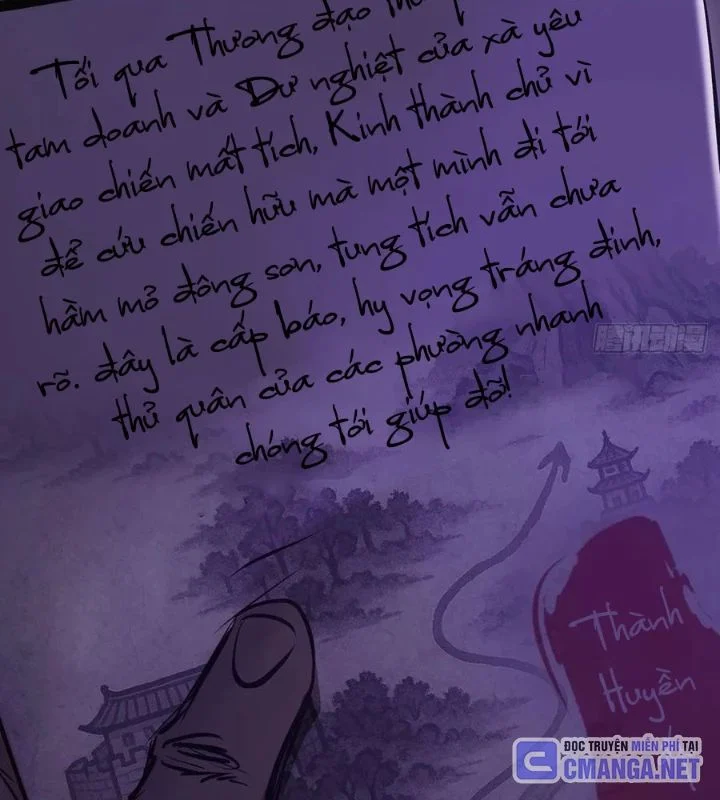 Tối qua Thương đạo
tam doanh và Dư nghiệt của xà yêu
giao chiến mất tích, Kinh thành chủ vì
để cứu chiến hữu mà một mình đi tới
hầm mỏ đông sơn, tung tích vẫn chưa
rõ. đây là cấp báo, hy vọng tráng đinh,
thủ quân của các phường nhanh
chóng tới giúp đỡ!
腾讯动漫
Thành
Huyền
ĐỌC TRUYỆN MIỄN PHÍ TẠI
CMANGA.NET